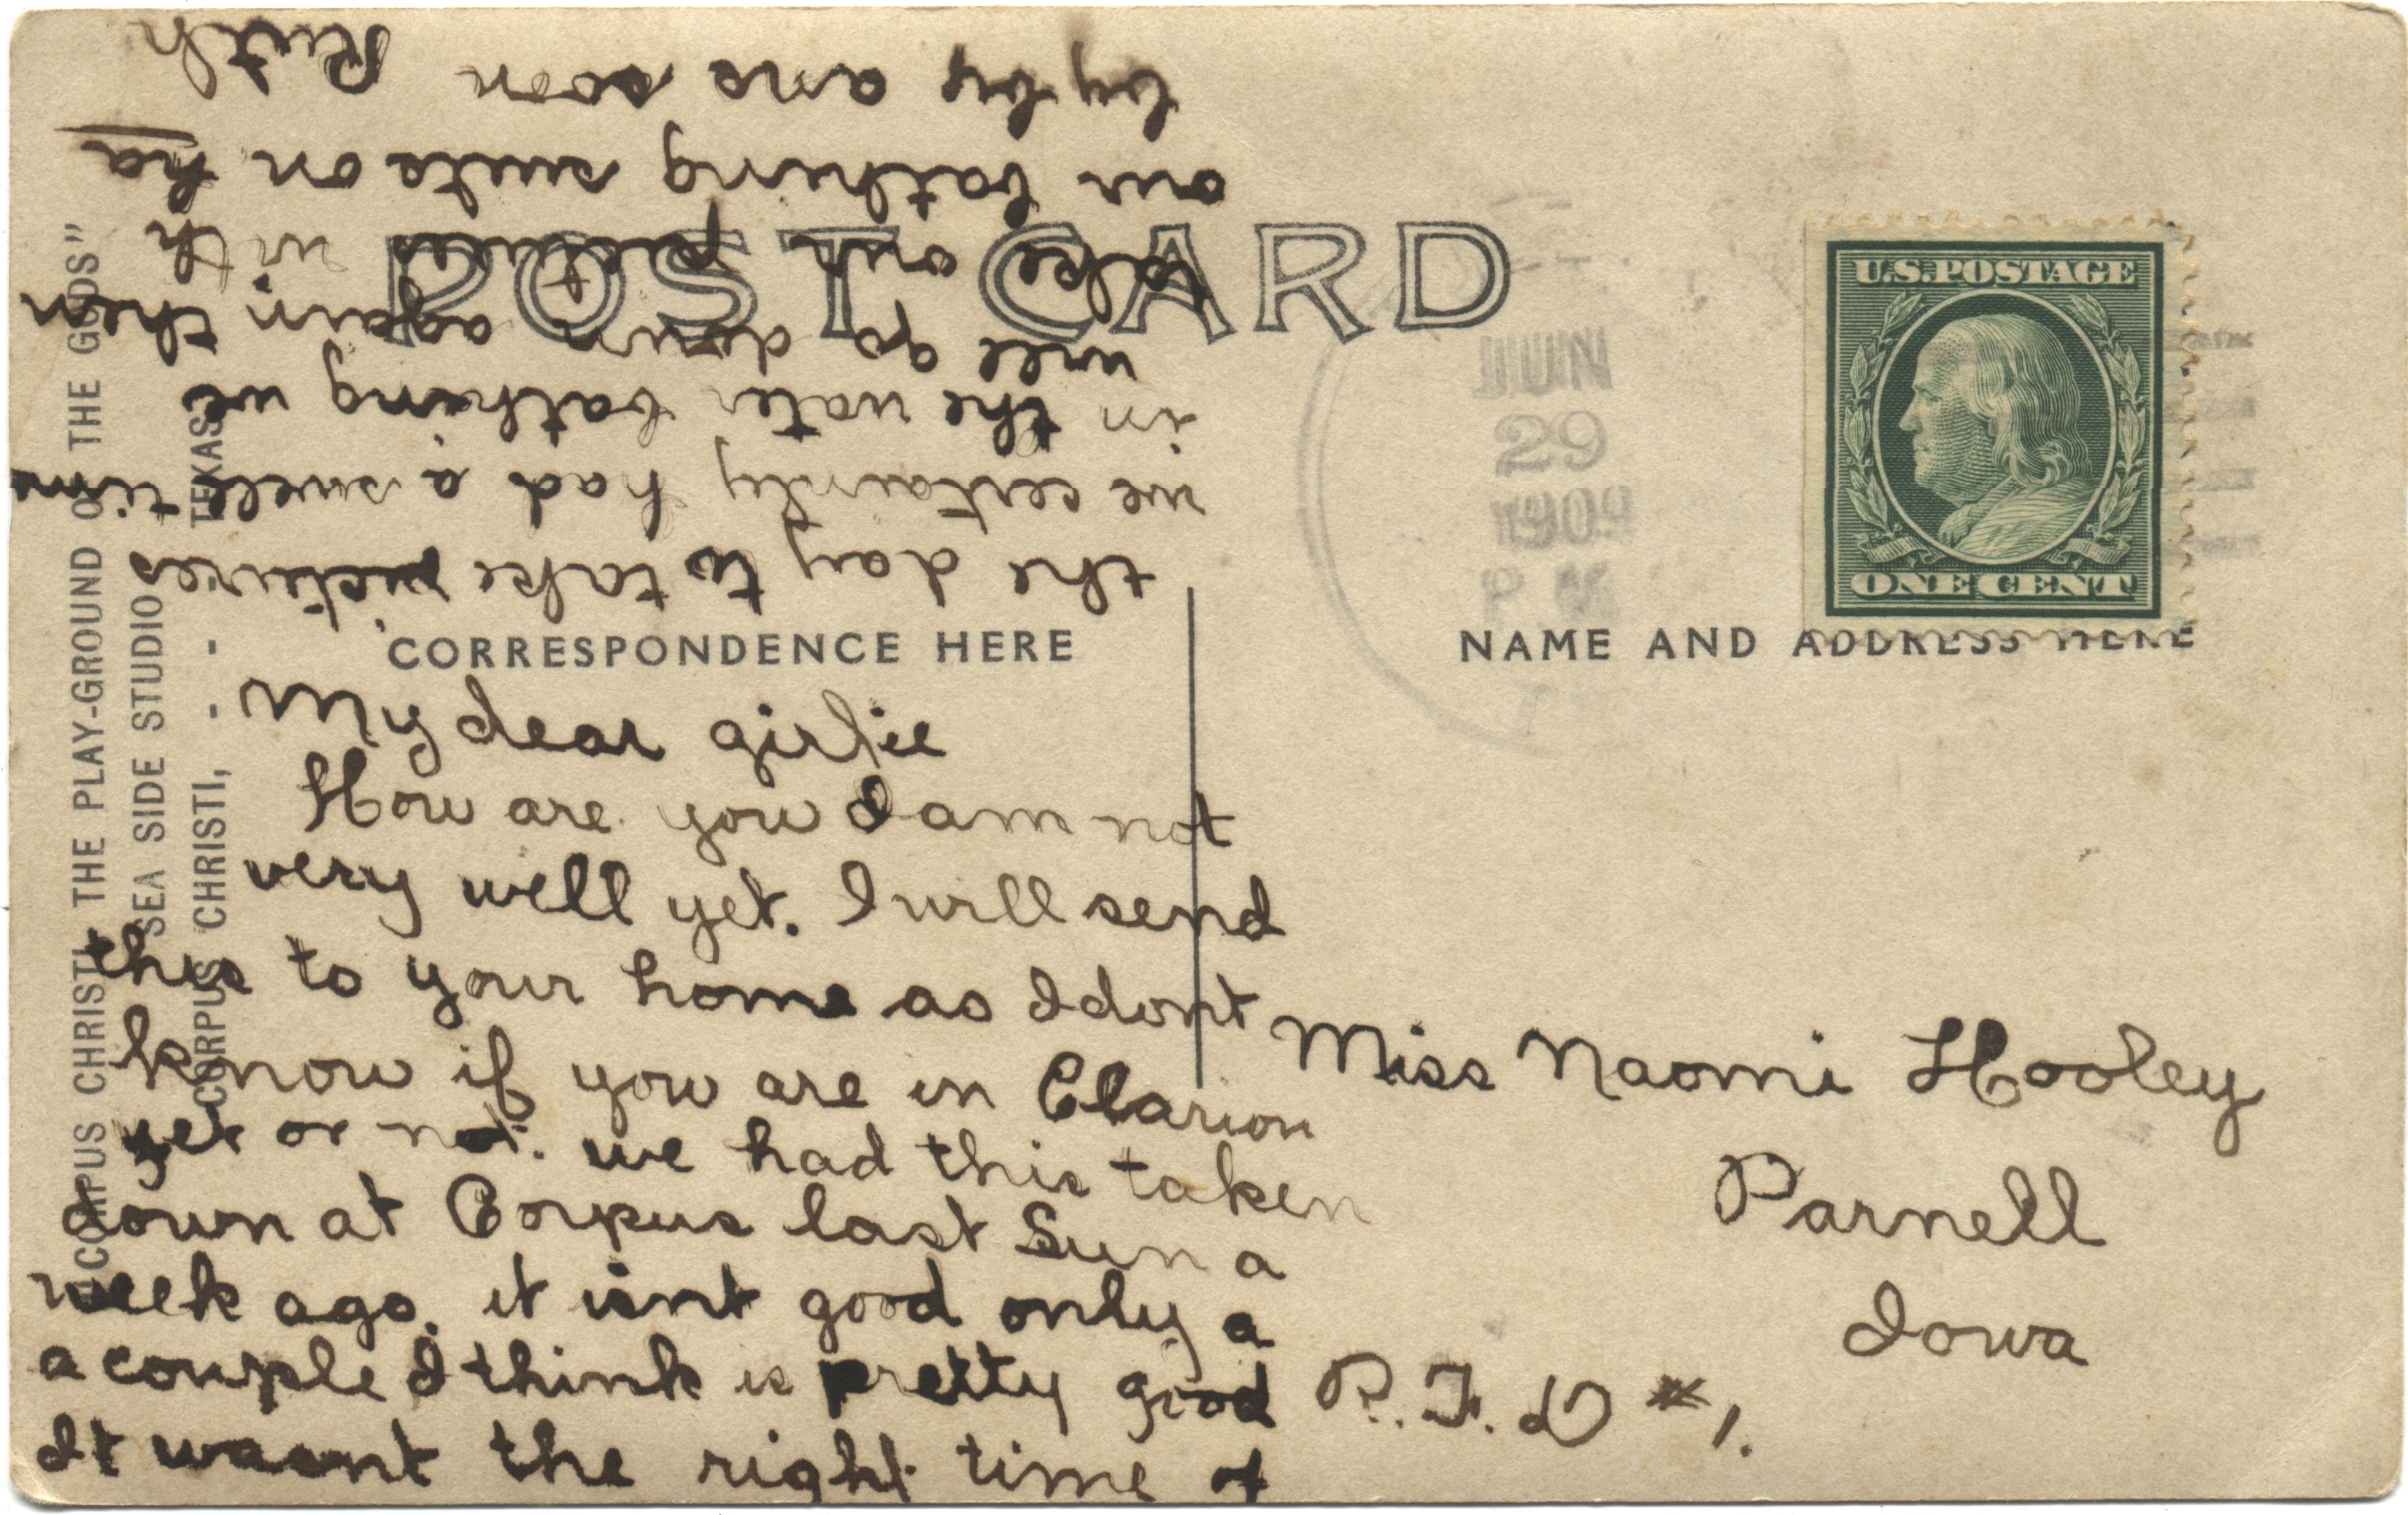 POST CARD
CORRESPONDENCE HERE
NAME AND ADDRESS HERE
"CORPUS CHRISTI, THE PLAY-GROUND OF THE GODS"
SEA SIDE STUDIO
CORPUS CHRISTI, - - TEXAS
U.S. POSTAGE
ONE CENT
JUN
29
1909
P M
My dear girlie
How are you I am not
very well yet. I will send
this to your home as I dont
know if you are in Clarion
yet or not. we had this taken
down at Corpus last Sun a
week ago. it isnt good only a
a couple I think is pretty good
It wasnt the right time of
the day to take pictures
we certainly had a swell time
in the water bathing we
will go down again then
take our pictures with
our bathing suits on ha
by by ans soon Ruth
Miss Naomi Hooley
Parnell
Iowa
R.F.D #1.